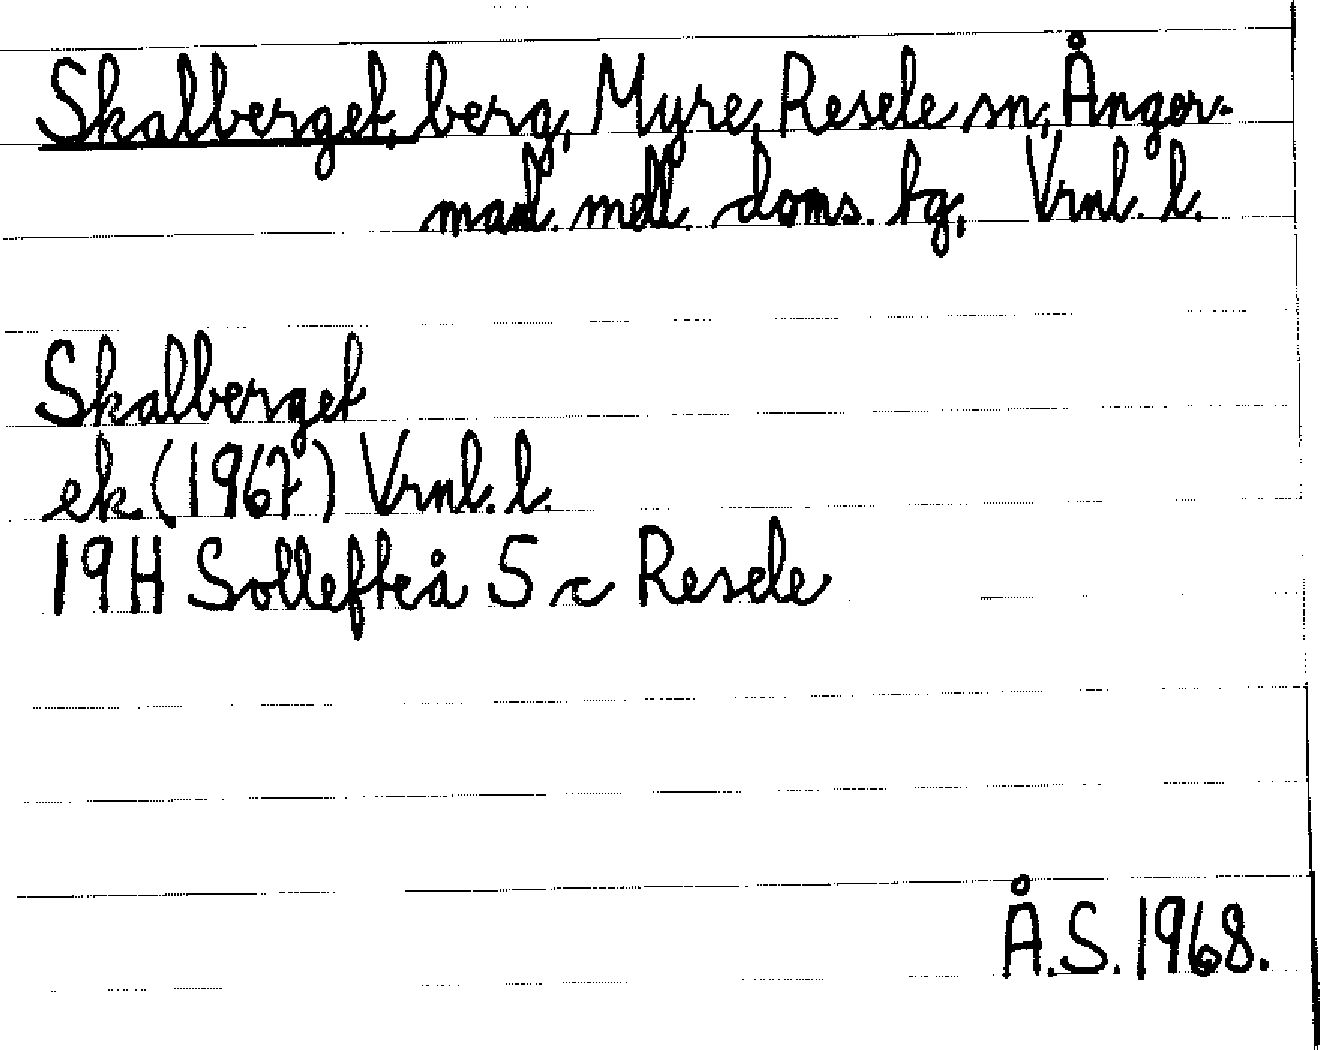 Skalberget, berg, Myre, Resele sn, Ånger-
manl. mell. doms. hg, Vrnl. l.
Skalberget
ek (1967) Vrnl. l.
19H Sollefteå 5 c Resele
Å.S. 1968.